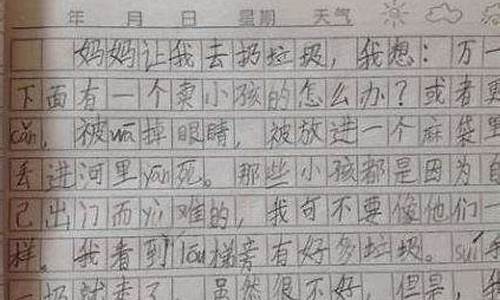 年 月 日 星期 天气
妈妈让我去扔垃圾，我想：万一
下面有一个卖小孩的怎么办？或者更
cǎn，被wā掉眼睛，被放进一个麻袋里
丢进河里yān死。那些小孩都是因为自
己出门而yù难的，我可不要像他们一
样。我看到lóu梯旁有好多垃圾。suí手
一扔就来了 虽然很不好，但是，我